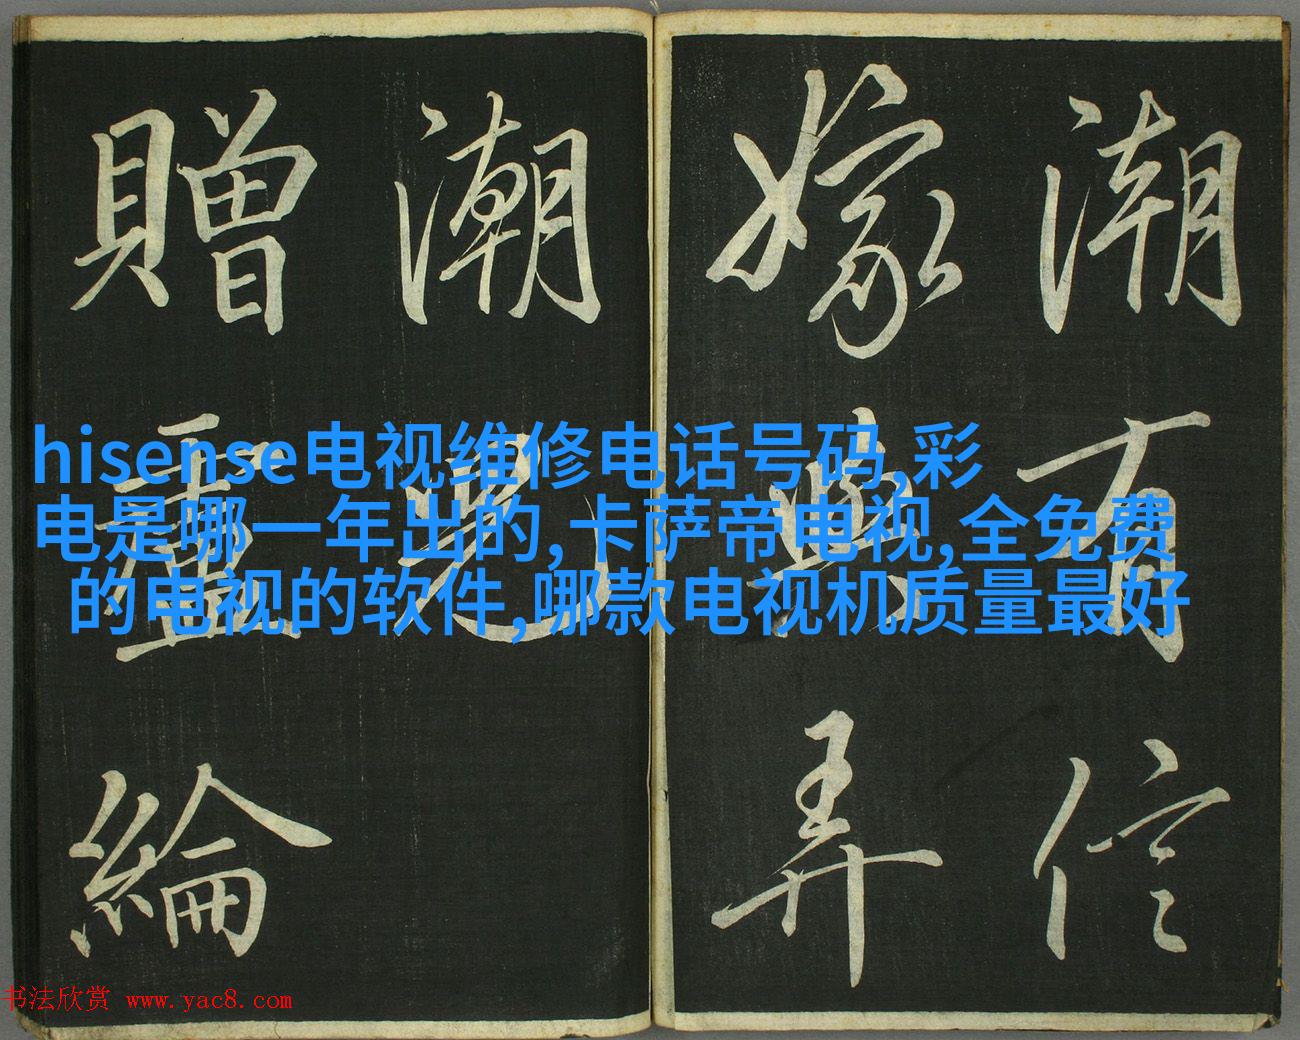 潮有信
嫁與弄
潮兒
贈盧綸
hisense电视维修电话号码,彩
电是哪一年出的,卡萨帝电视,全免费
的电视的软件,哪款电视机质量最好
书法欣赏 www.yac8.com